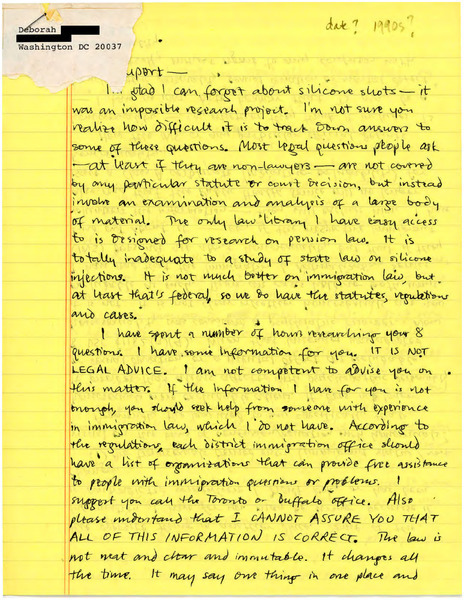 Deborah
Washington DC 20037
date? 1990s?
I'm glad I can forget about silicone shots — it
was an impossible research project. I'm not sure you
realize how difficult it is to track down answers to
some of these questions. Most legal questions people ask
— at least if they are non-lawyers — are not covered
by any particular statute or court decision, but instead
involve an examination and analysis of a large body
of material. The only law library I have easy access
to is designed for research on pension law. It is
totally inadequate to a study of state law on silicone
injections. It is not much better on immigration law, but
at least that's federal, so we do have the statutes, regulations
and cases.
I have spent a number of hours researching your 8
questions. I have some information for you. IT IS NOT
LEGAL ADVICE. I am not competent to advise you on
this matter. If the information I have for you is not
enough, you should seek help from someone with experience
in immigration law, which I do not have. According to
the regulations, each district immigration office should
have a list of organizations that can provide free assistance
to people with immigration questions or problems. I
suggest you call the Toronto or Buffalo office. Also
please understand that I CANNOT ASSURE YOU THAT
ALL OF THIS INFORMATION IS CORRECT. The law is
not neat and clear and immutable. It changes all
the time. It may say one thing in one place and